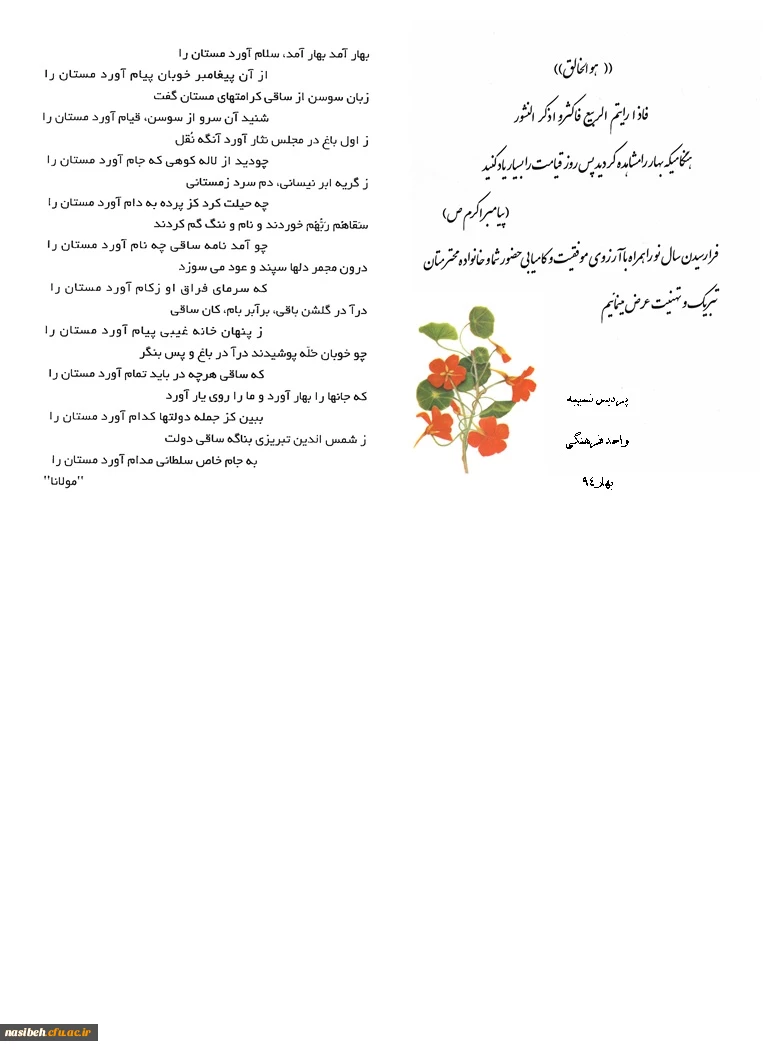 (( هوالخالق))
فاذا رایتم الربیع فاکثرو اذکر النشور
هنگامیکه بهار را مشاهده کردید پس روز قیامت را بسیار یاد کنید
(پیامبر اکرم ص)
فرارسیدن سال نو را همراه با آرزوی موفقیت و کامیابی حضور شما و خانواده محترمتان
تبریک و تهنیت عرض مینمائیم
پردیس نسیبه
واحد فرهنگی
بهار ٩٤
بهار آمد بهار آمد، سلام آورد مستان را
از آن پیغامبر خوبان پیام آورد مستان را
زبان سوسن از ساقی کرامتهای مستان گفت
شنید آن سرو از سوسن، قیام آورد مستان را
ز اول باغ در مجلس نثار آورد آنگه نُقل
چودید از لاله کوهی که جام آورد مستان را
ز گریه ابر نیسانی، دم سرد زمستانی
چه حیلت کرد کز پرده به دام آورد مستان را
سَقاهُم رَبُّهُم خوردند و نام و ننگ گم کردند
چو آمد نامه ساقی چه نام آورد مستان را
درون مجمر دلها سپند و عود می سوزد
که سرمای فراق او زکام آورد مستان را
درآ در گلشن باقی، برآبر بام، کان ساقی
ز پنهان خانه غیبی پیام آورد مستان را
چو خوبان حلّه پوشیدند درآ در باغ و پس بنگر
که ساقی هرچه در باید تمام آورد مستان را
که جانها را بهار آورد و ما را روی یار آورد
ببین کز جمله دولتها کدام آورد مستان را
ز شمس اندین تبریزی بناگه ساقی دولت
به جام خاص سلطانی مدام آورد مستان را
"مولانا"
nasibeh.cfu.ac.ir